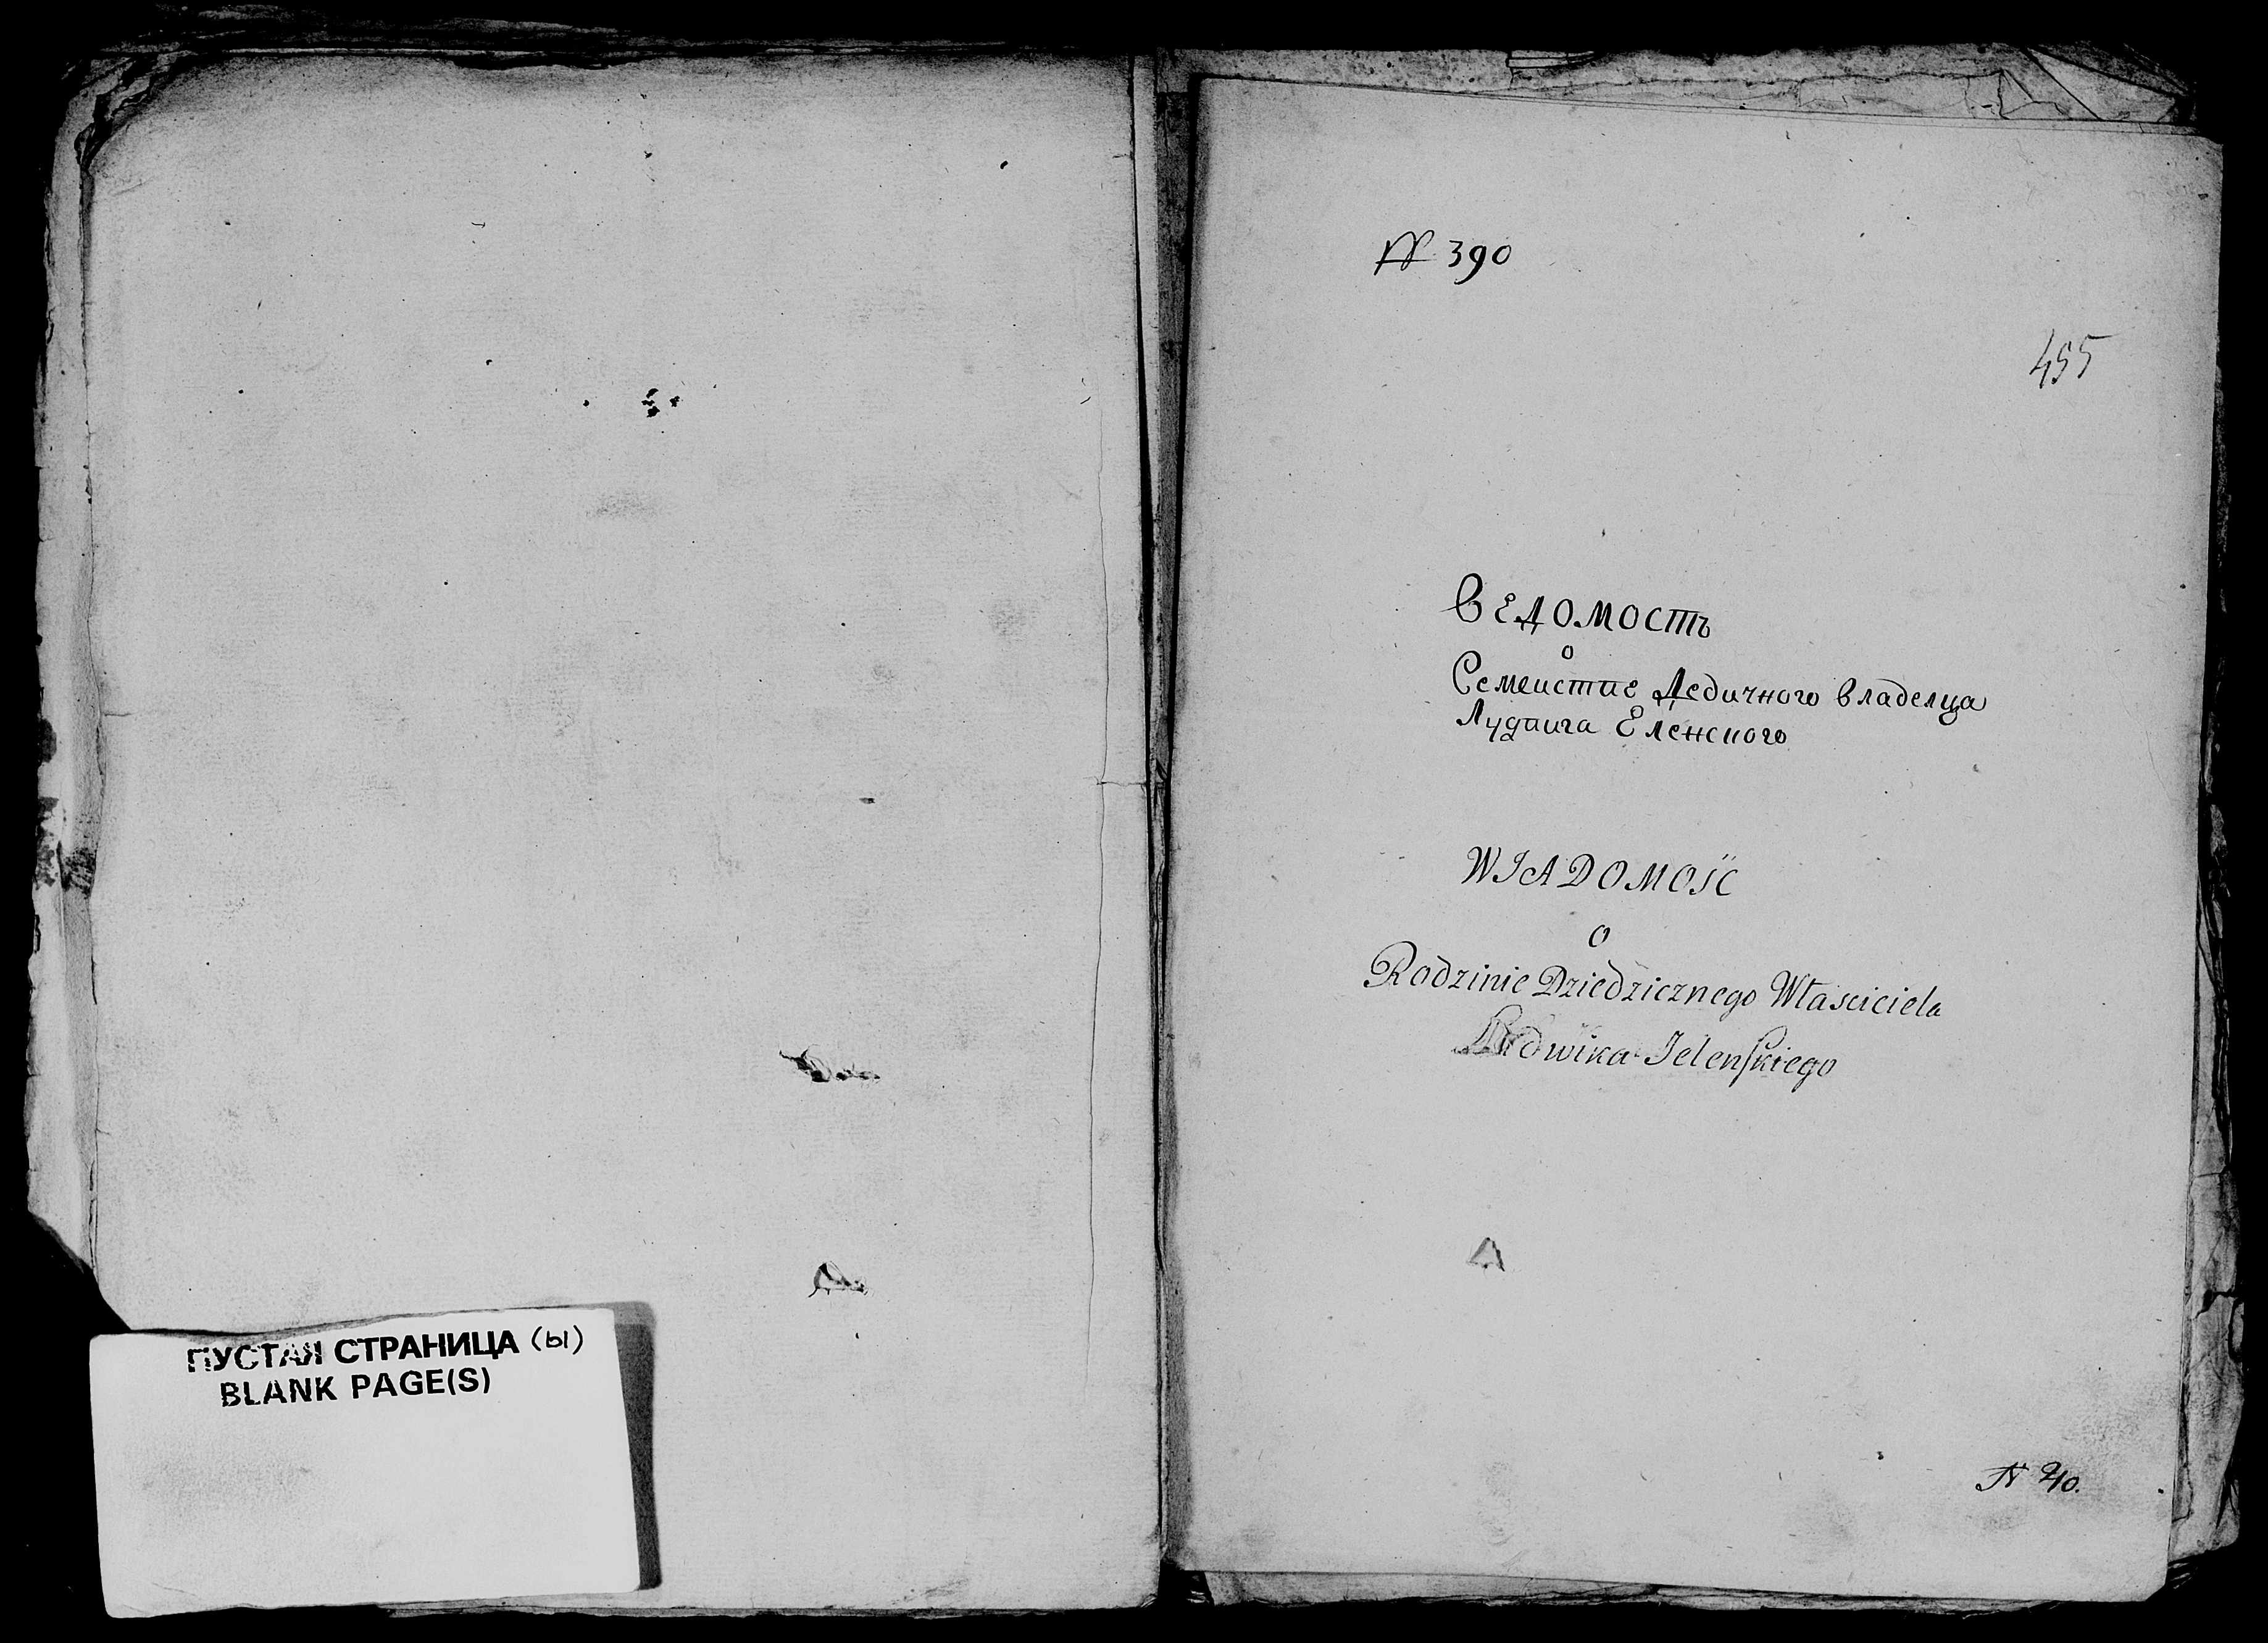 ПУСТАЯ СТРАНИЦА (ы)
BLANK PAGE(S)
№ 390
455
ВЕДОМОСТЬ
о
Семеистве Дедичного Владелца
Лудвига Еленского
WIADOMOŚĆ
O
Rodzinie Dziedzicznego Własciciela
Ludwika Jelenskiego
N 40.